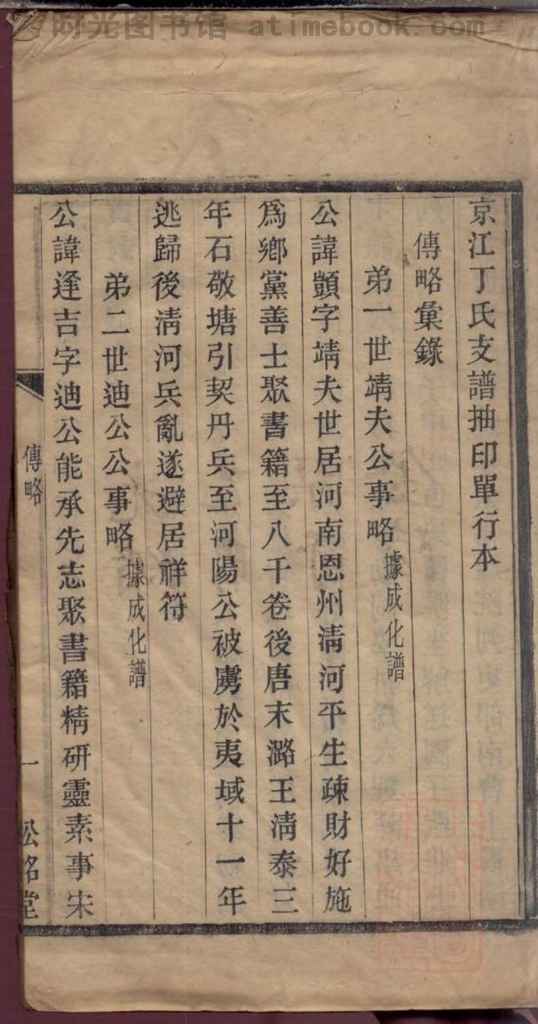 时光图书馆 atimebook.com
京江丁氏支譜抽印單行本
傳略彙錄
弟一世靖夫公事略據成化譜
公諱顗字靖夫世居河南恩州淸河平生疎財好施
爲鄉黨善士聚書籍至八千卷後唐末潞王淸泰三
年石敬塘引契丹兵至河陽公被虜於夷域十一年
逃歸後淸河兵亂遂避居祥符
弟二世迪公公事略據成化譜
公諱逢吉字迪公能承先志聚書籍精研靈素事宋
傳略
一
松銘堂